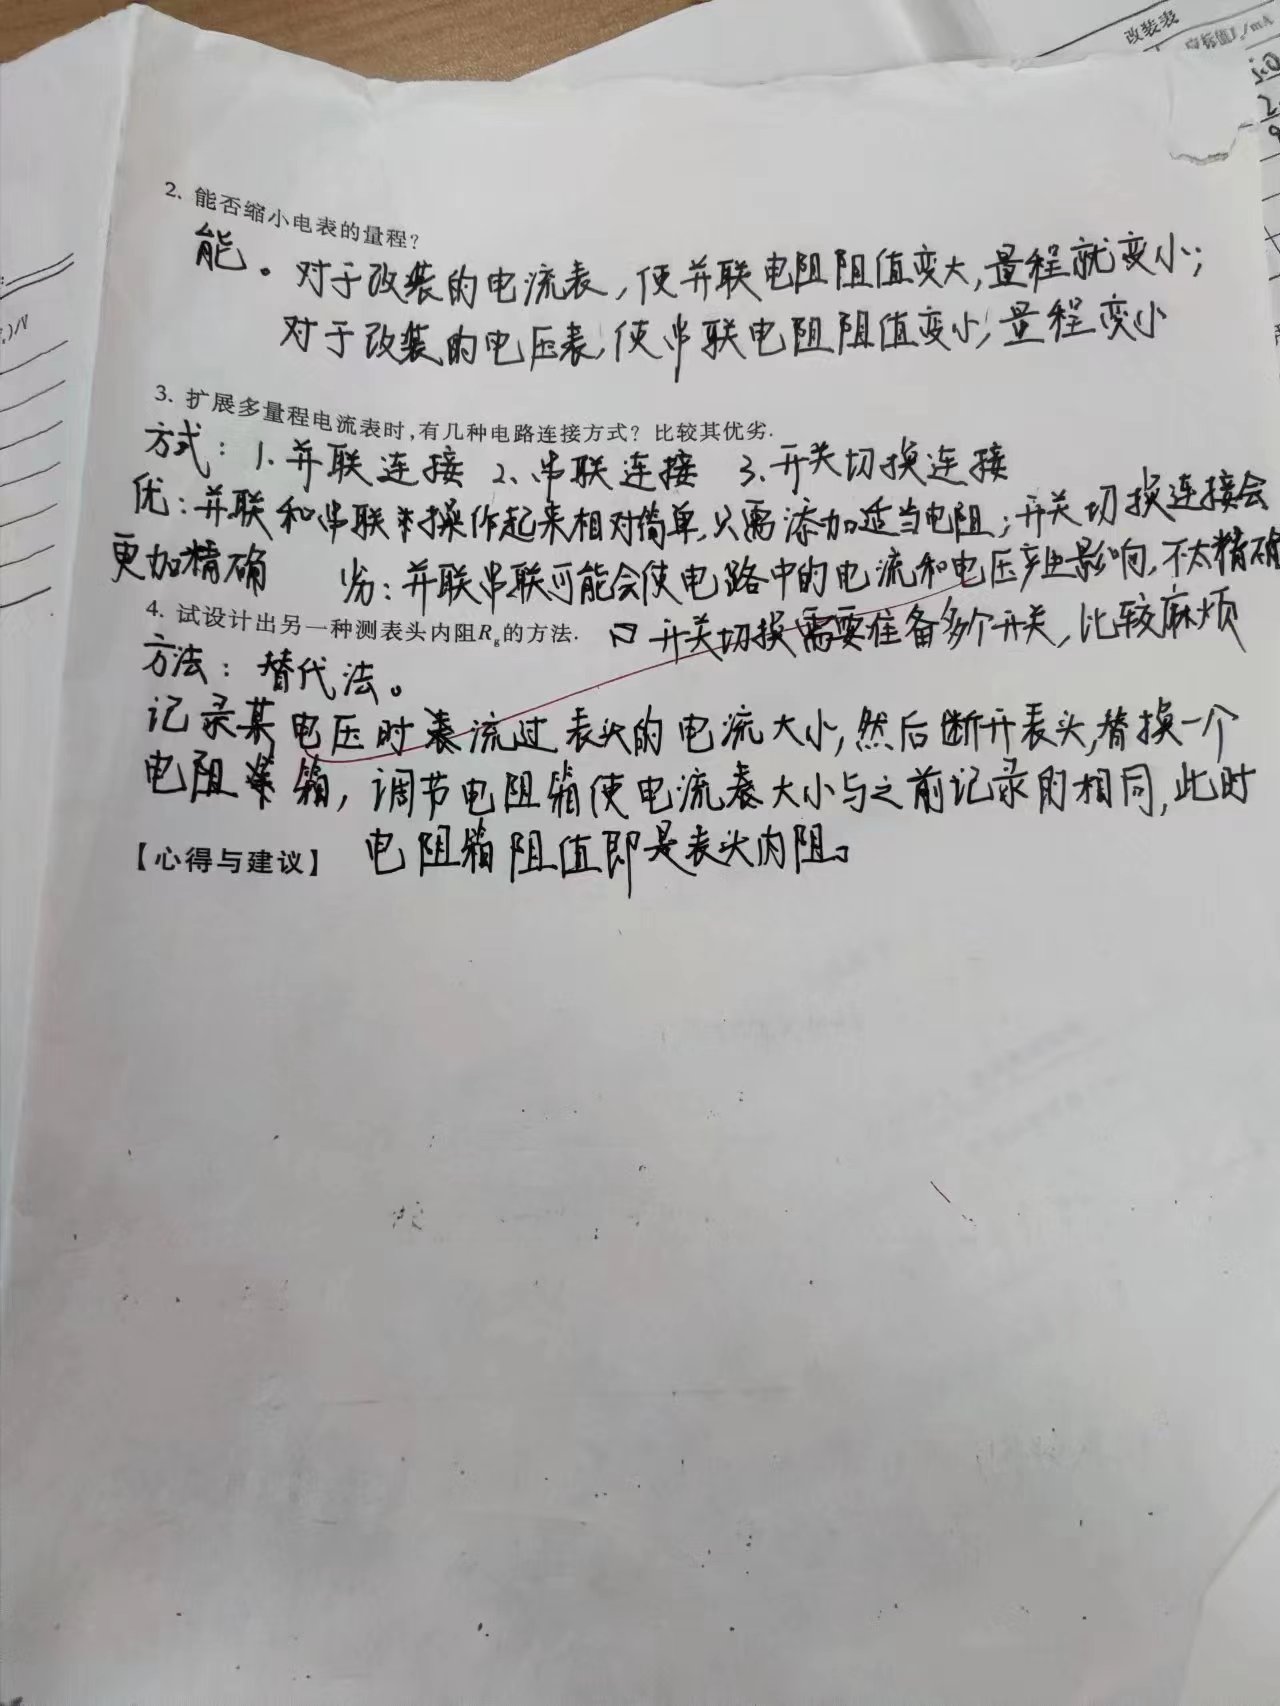 改装表
应标值I/mA
2. 能否缩小电表的量程?
能。对于改装的电流表,使并联电阻阻值变大,量程就变小;
对于改装的电压表,使串联电阻阻值变小,量程变小
3. 扩展多量程电流表时,有几种电路连接方式? 比较其优劣.
方式: 1. 并联连接 2. 串联连接 3. 开关切换连接
优: 并联和串联操作起来相对简单,只需添加适当电阻;开关切换连接会
更加精确 劣: 并联串联可能会使电路中的电流和电压产生影响,不太精确
4. 试设计出另一种测表头内阻Rg的方法. 开关切换需要准备多个开关,比较麻烦
方法: 替代法。
记录某电压时表流过表头的电流大小,然后断开表头,替换一个
电阻箱,调节电阻箱使电流表大小与之前记录的相同,此时
【心得与建议】 电阻箱阻值即是表头内阻。